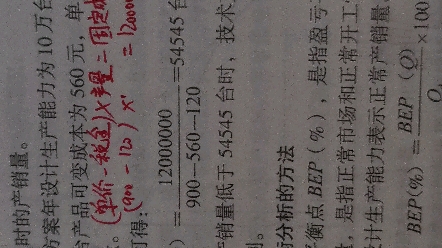 时的产销量。
方案年设计生产能力为10万台
台产品可变成本为560元，单
(单价-税金)×产量=固定成
(900-120) x = 12000
可得：
) = 12000000 / 900-560-120 = 54545 台
销量低于54545台时，技术
分析的方法
衡点BEP(%)，是指盈亏
，是指正常市场和正常开工
计生产能力表示正常产销量
BEP(%) = BEP(Q) / Q × 100